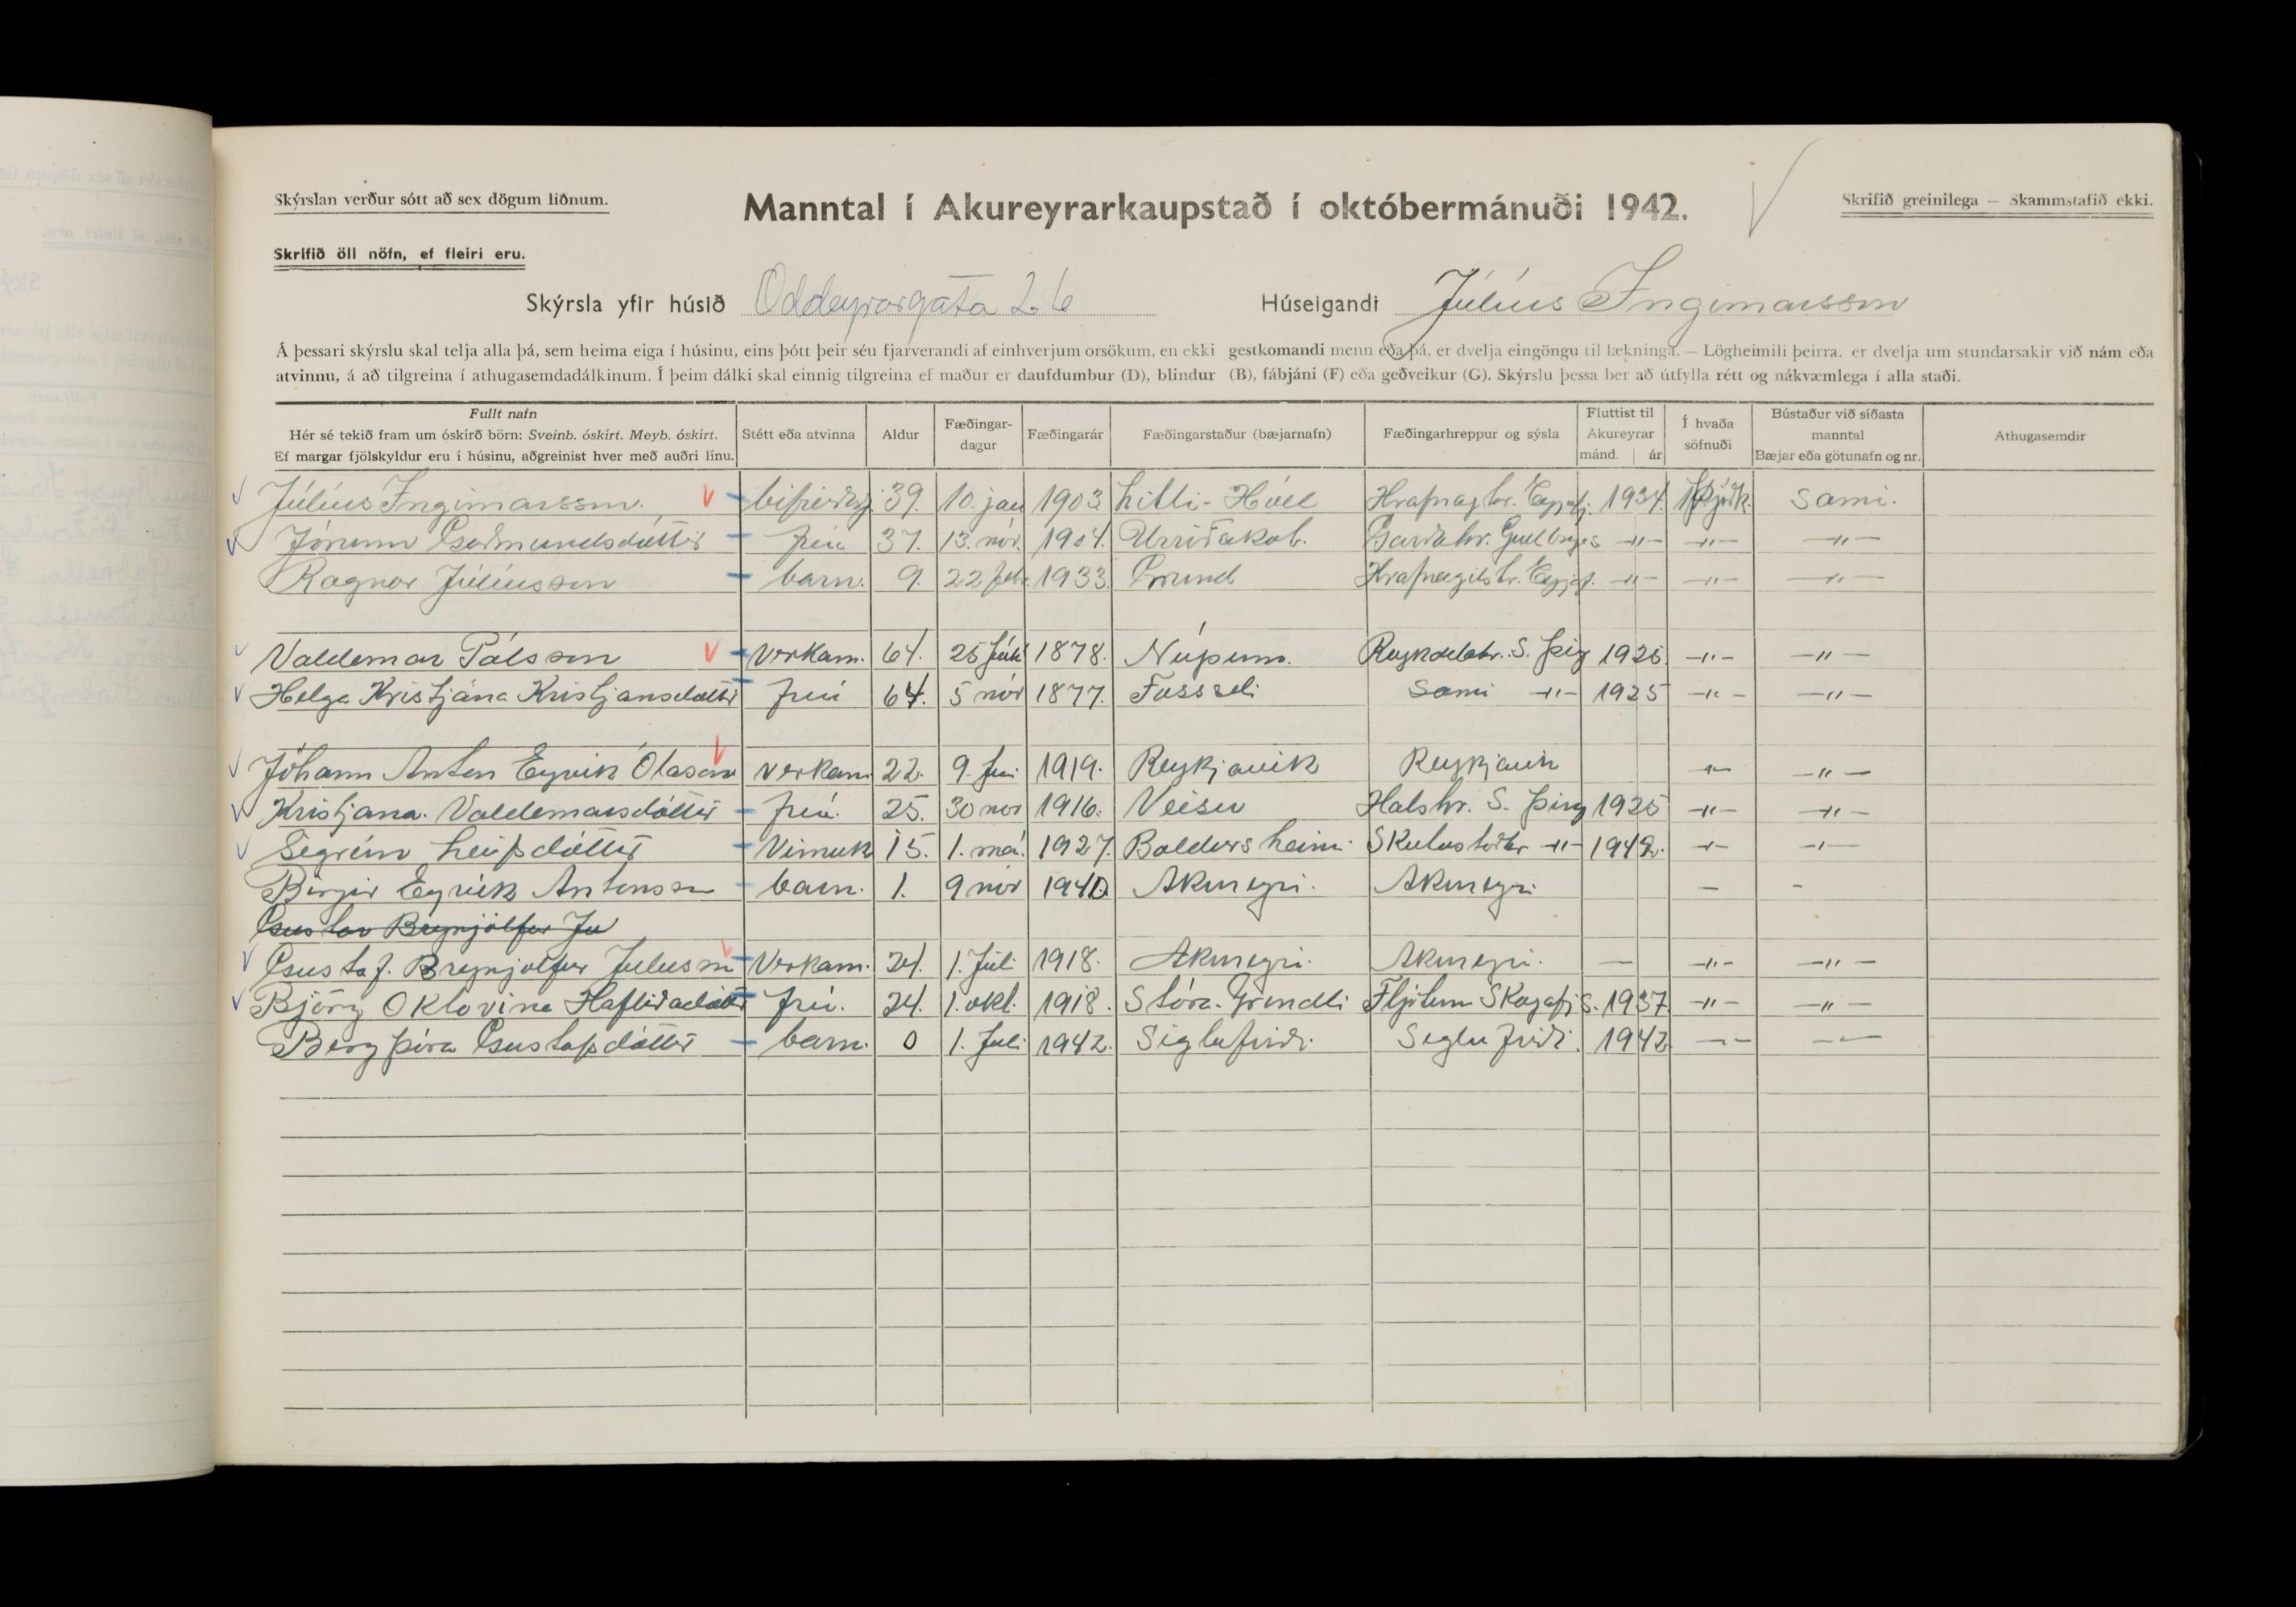 Skýrslan verður sótt að sex dögum liðnum.
Manntal í Akureyrarkaupstað í októbermánuði 1942.
Skrifið greinilega — Skammstafið ekki.
Skrifið öll nöfn, ef fleiri eru.
Skýrsla yfir húsið Oddeyrargata 26 Húseigandi Júlíus Ingimarsson
Á þessari skýrslu skal telja alla þá, sem heima eiga í húsinu, eins þótt þeir séu fjarverandi af einhverjum orsökum, en ekki gestkomandi menn eða þá, er dvelja eingöngu til lækninga. — Lögheimili þeirra, er dvelja um stundarsakir við nám eða
atvinnu, á að tilgreina í athugasemdadálkinum. Í þeim dálki skal einnig tilgreina ef maður er daufdumbur (D), blindur (B), fábjáni (F) eða geðveikur (G). Skýrslu þessa ber að útfylla rétt og nákvæmlega í alla staði.
Fullt nafn
Hér sé tekið fram um óskírð börn: Sveinb. óskírt. Meyb. óskírt.
Ef margar fjölskyldur eru í húsinu, aðgreinist hver með auðri línu.
Stétt eða atvinna
Aldur
Fæðingar-
dagur
Fæðingarár
Fæðingarstaður (bæjarnafn)
Fæðingarhreppur og sýsla
Fluttist til
Akureyrar
mánd. ár
Í hvaða
söfnuði
Bústaður við síðasta
manntal
Bæjar eða götunafn og nr.
Athugasemdir
Júlíus Ingimarsson. 39. 10. jan 1903 Litli-Hóll 1934. Þjóðk. Sami.
Jórunn Guðmundsdóttir frú 37. 13. nóv. 1904. Urriðakob. Garðahr. Gullbrs -"- -"- -"-
Ragnar Júlíusson barn. 9. 22 feb. 1933. Grund Hrafnagilshr. Eyjaf. -"- -"- -"-
Valdemar Pálsson Verkam. 64. 25 Júlí 1878. Núpum. Reykdælahr. S. Þing 1925 -"- -"-
Helga Kristjána Kristjansdóttir frú 64. 5 nóv 1877. Fossseli Sami -"- 1925 -"- -"-
Jóhann Anton Eyvik Ólason Verkam 22. 9. Jún. 1919. Reykjavik Reykjavik -"- -"-
Kristjana. Valdemarsdóttir frú. 25. 30 nov 1916. Veisu Halshr. S. Þing 1925 -"- -"-
Sigrún Leifsdóttir Vinnuk 15. 1. maí. 1927. Baldursheimi Skutustaðhr -"- 1942. -"- -"-
Birgir Eyvik Antonsson barn. 1. 9 nóv 1940 Akureyri. Akureyri — -
Gustav Brynjólfur Ju
Gustaf. Brynjolfur Juliusson Verkam. 24. 1. Júlí 1918. Akureyri. Akureyri. — -"- -"-
Björg Oktovina Hafliðadóttir frú. 24. 1. okt. 1918. Stóra-Grindli Fljótum Skagafj S. 1937 -"- -"-
Bergþóra Gustafsdóttir barn. 0 1. Juli 1942. Siglufirði. Siglufirði. 1942 -- --